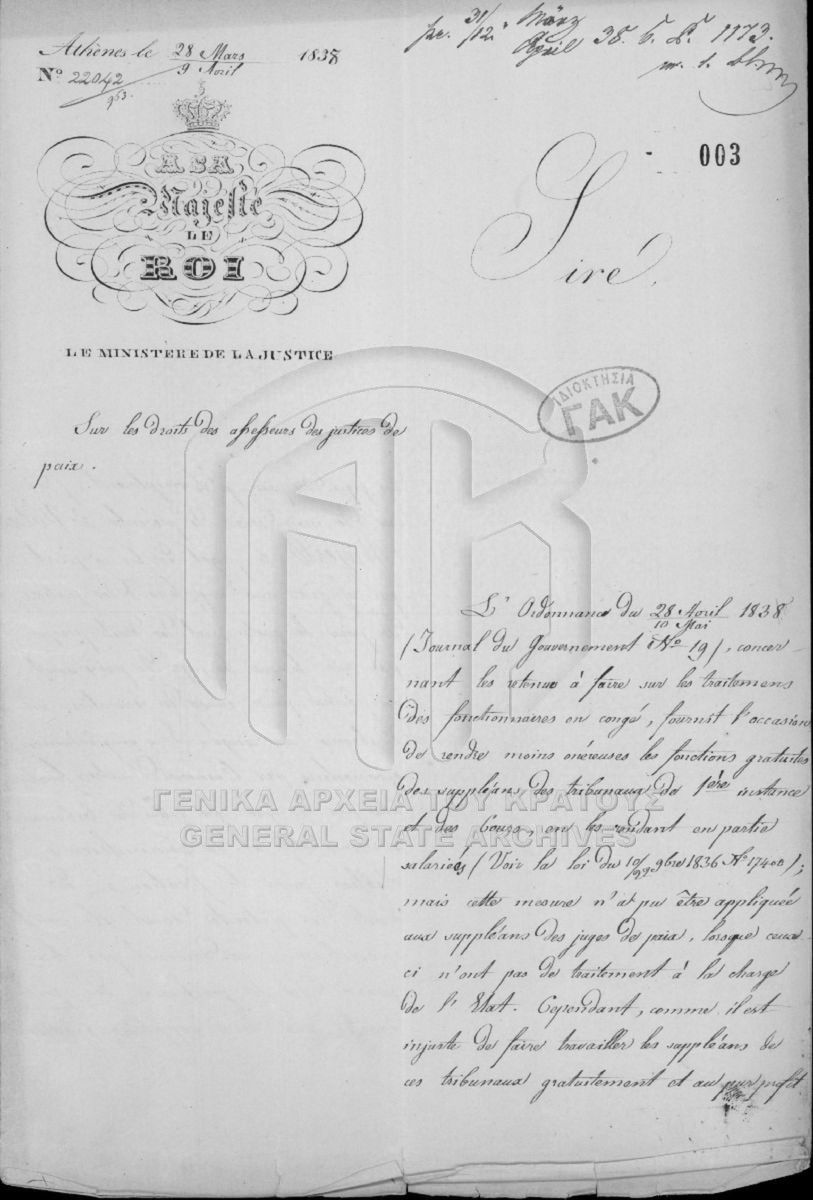 Athènes le 28 Mars / 9 Avril 1838
Nº 22042
953
A SA
Majesté
LE
ROI
LE MINISTÈRE DE LA JUSTICE
Sur les droits des assesseurs des justices de
paix.
pr. 31/12. März
April 38. 1173.
003
Sire,
ΙΔΙΟΚΤΗΣΙΑ
ΓΑΚ
L'Ordonnance du 28 Avril / 10 Mai 1838
(Journal du Gouvernement Nº 19), concer-
nant les retenues à faire sur les traitemens
des fonctionnaires en congé, fournit l'occasion
de rendre moins onéreuses les fonctions gratuites
des suppléans des tribunaux de 1ère instance
et des Cours, en les rendant en partie
salariées (Voir la loi du 10/22 9bre 1836 Nº 17400);
mais cette mesure n'a pu être appliquée
aux suppléans des juges de paix, lorsque ceux-
ci n'ont pas de traitement à la charge
de l'Etat. Cependant, comme il est
injuste de faire travailler les suppléans de
ces tribunaux gratuitement et au pur profit
ΓΕΝΙΚΑ ΑΡΧΕΙΑ ΤΟΥ ΚΡΑΤΟΥΣ
GENERAL STATE ARCHIVES